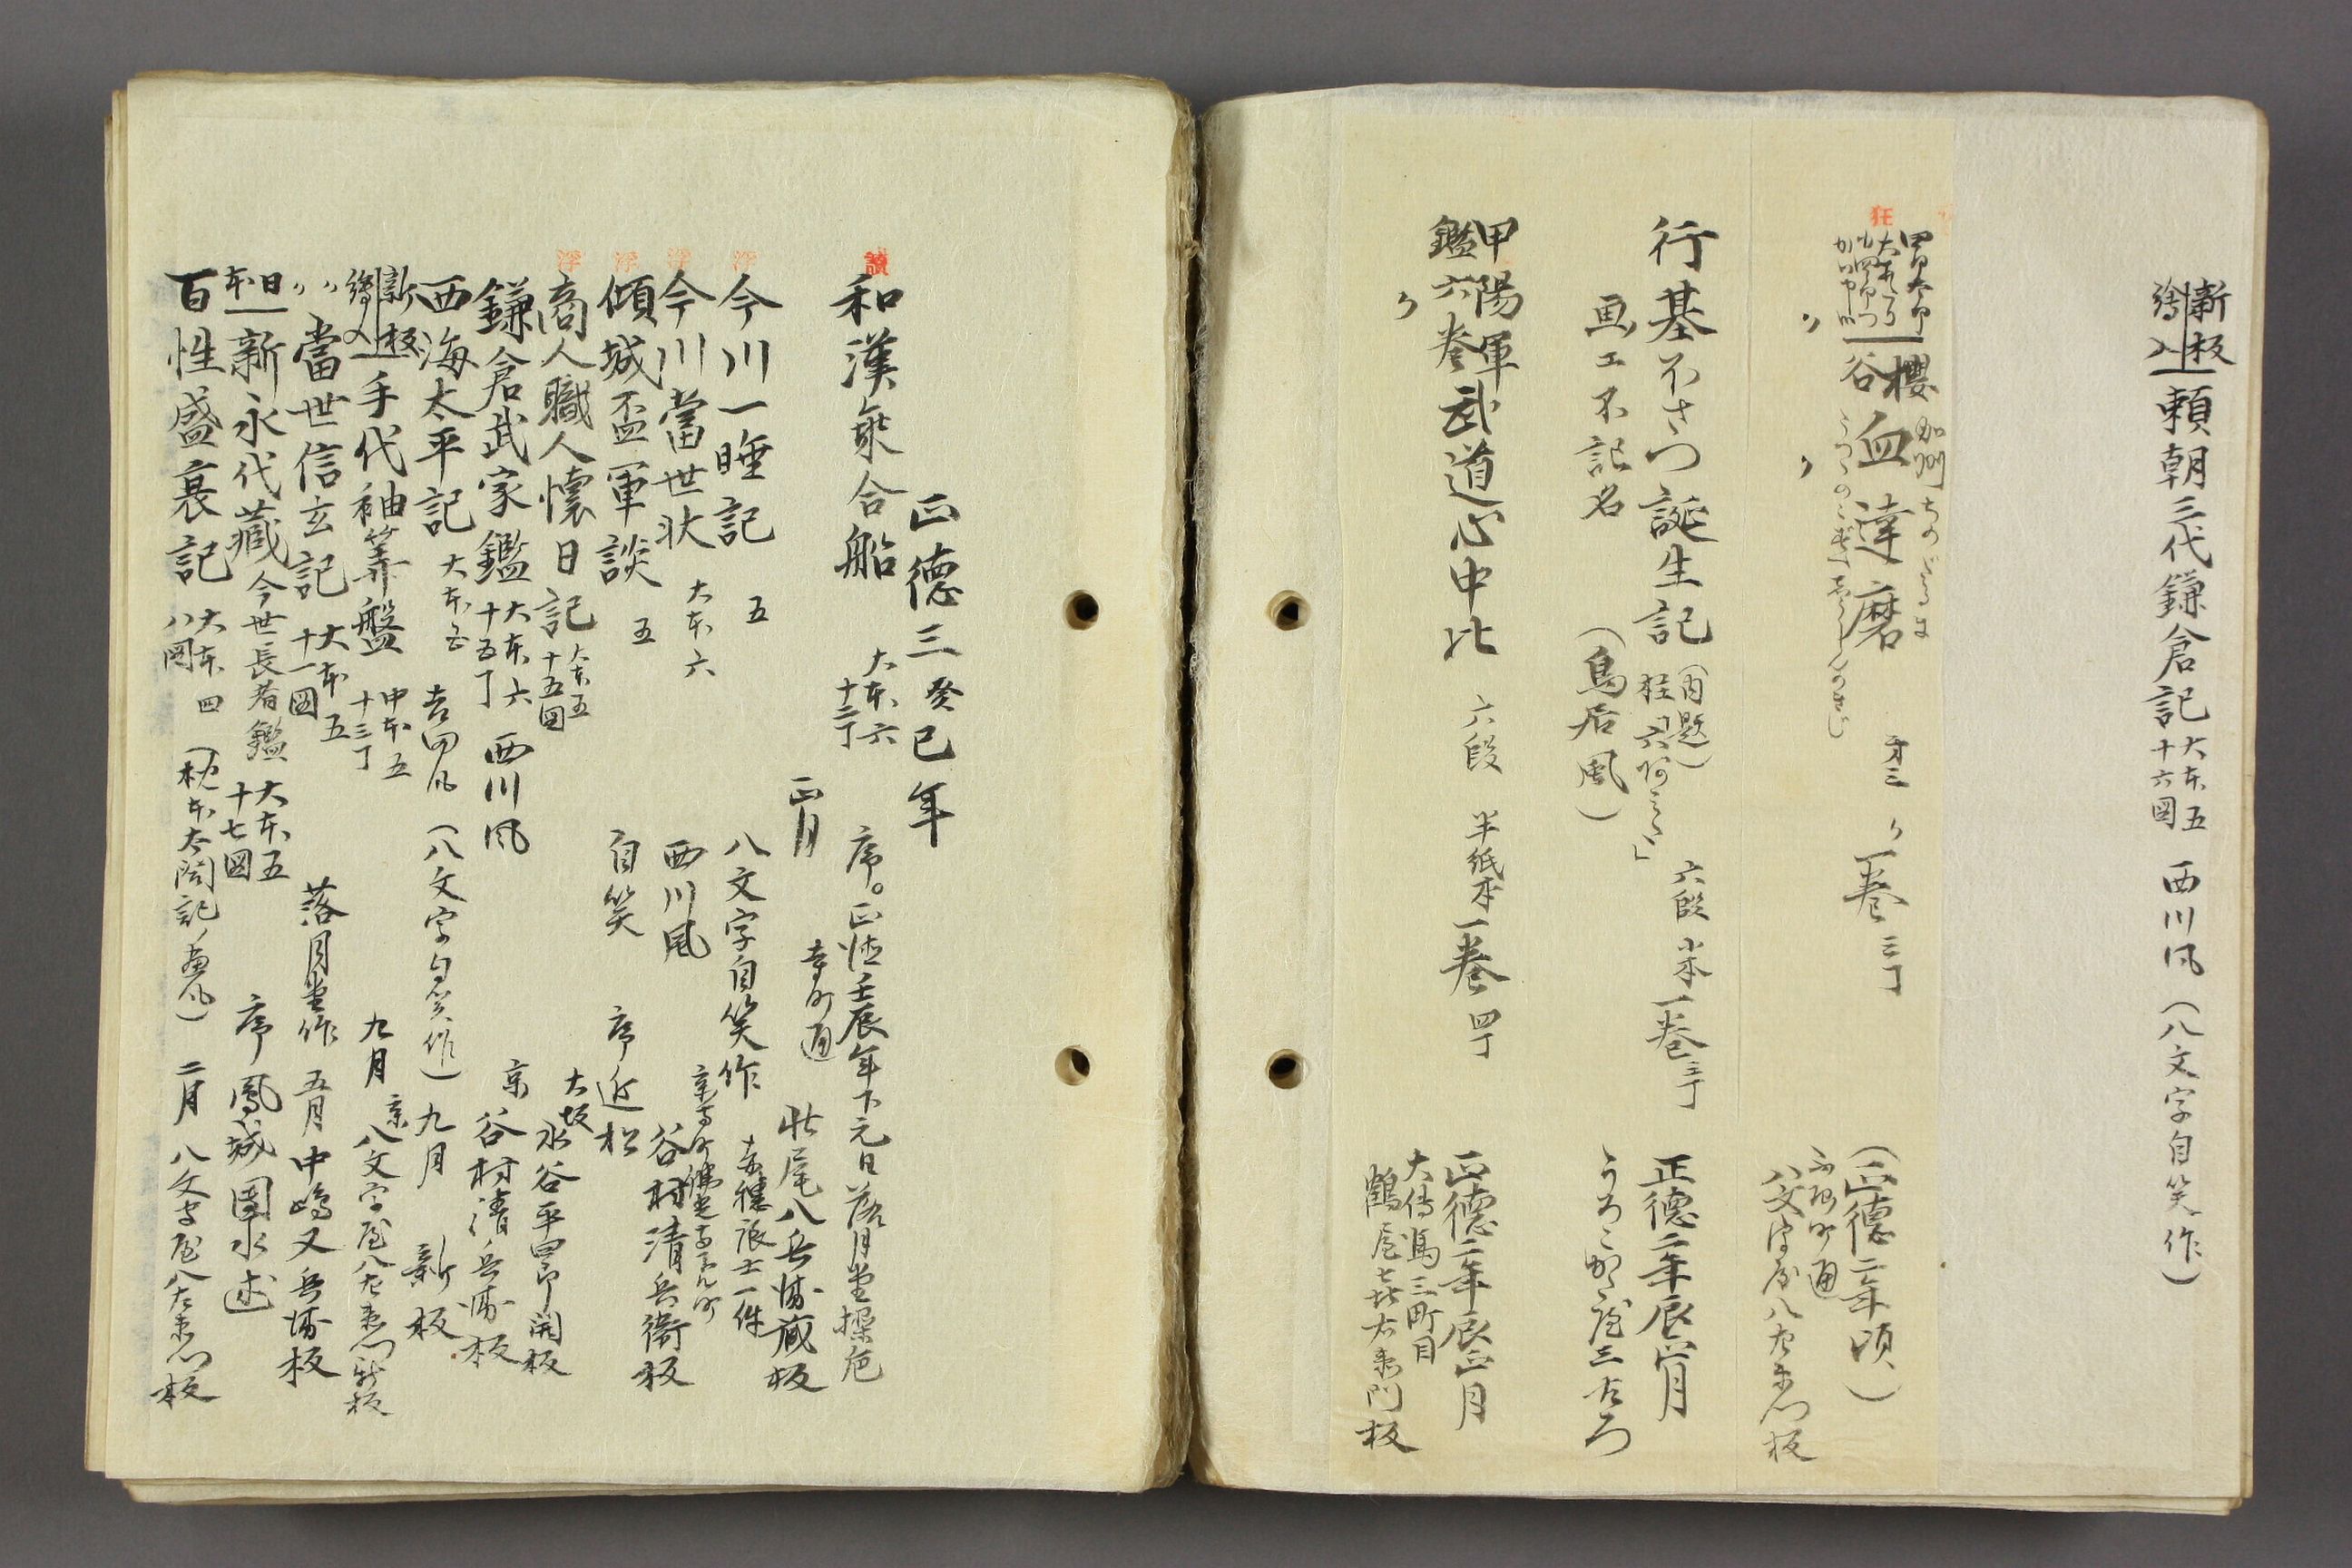 新板
繪入 頼朝三代鎌倉記 大本五 十六図 西川風 (八文字自笑作)
狂
櫻谷 血達磨
才三 一巻 三丁
(正徳二年頃)
ふ屋町通
八文字屋八左衛門板
行基ぼさつ誕生記 (内題) 六段 半紙本 一巻 三丁 正徳二年辰正月
画工不記名 (鳥居風) うろこ形屋三左衛門
甲陽軍鑑六巻 武道心中比 六段 半紙本 一巻 四丁 正徳二年辰正月
大傳馬三町目
鶴屋喜右衛門板
正徳三癸巳年
讀
和漢乗合船 大本六 十二丁 序。正徳壬辰年下元日落月堂操巵
正月 寺町通 壮尾八兵衛蔵板
浮
今川一睡記 五 八文字自笑作 赤穗浪士一件
浮
今川當世状 大本六 西川風 京寺町 谷村清兵衛板
浮
傾城盃軍談 五 自笑 序近松
浮
商人職人懷日記 大本五 十五図 大坂 水谷平四郎開板
鎌倉武家鑑 大本六 十五丁 西川風 京 谷村清兵衛板
西海太平記 大本五 吉田風 (八文字自笑作) 九月 新板
新板
繪入 手代袖算盤 中本五 十三丁 九月 京 八文字屋八左衛門新板
〃 當世信玄記 大本五 十一図 落月堂作 五月 中嶋又兵衛板
日本 新永代藏 今世長者鑑 大本五 十七図 序 鳳城團水述
百性盛衰記 大本四 八図 (枕本太閤記ノ画風) 二月 八文字屋八左衛門板